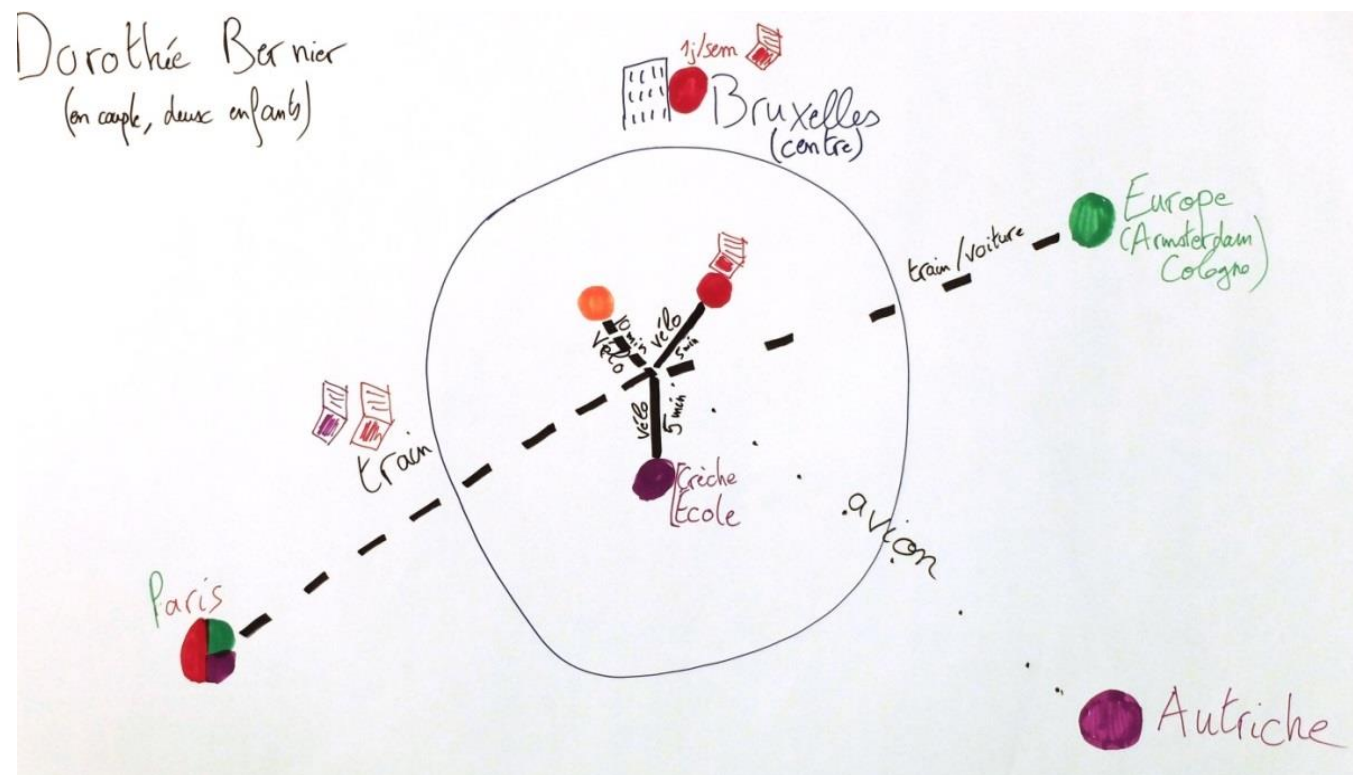 Dorothée Bernier
(en couple, deux enfants)
1j/sem
Bruxelles
(centre)
Europe
(Amsterdam
Cologne)
train/voiture
vélo
vélo
5 min
train
vélo
5 min
Crèche
École
avion
Paris
Autriche